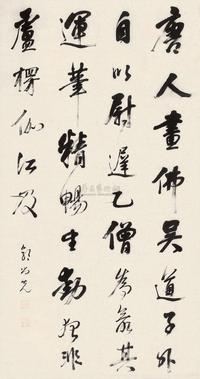 唐人畫佛吳道子外
自以尉遲乙僧為最其
運筆精暢生動殆非
盧楞伽
郭尚先